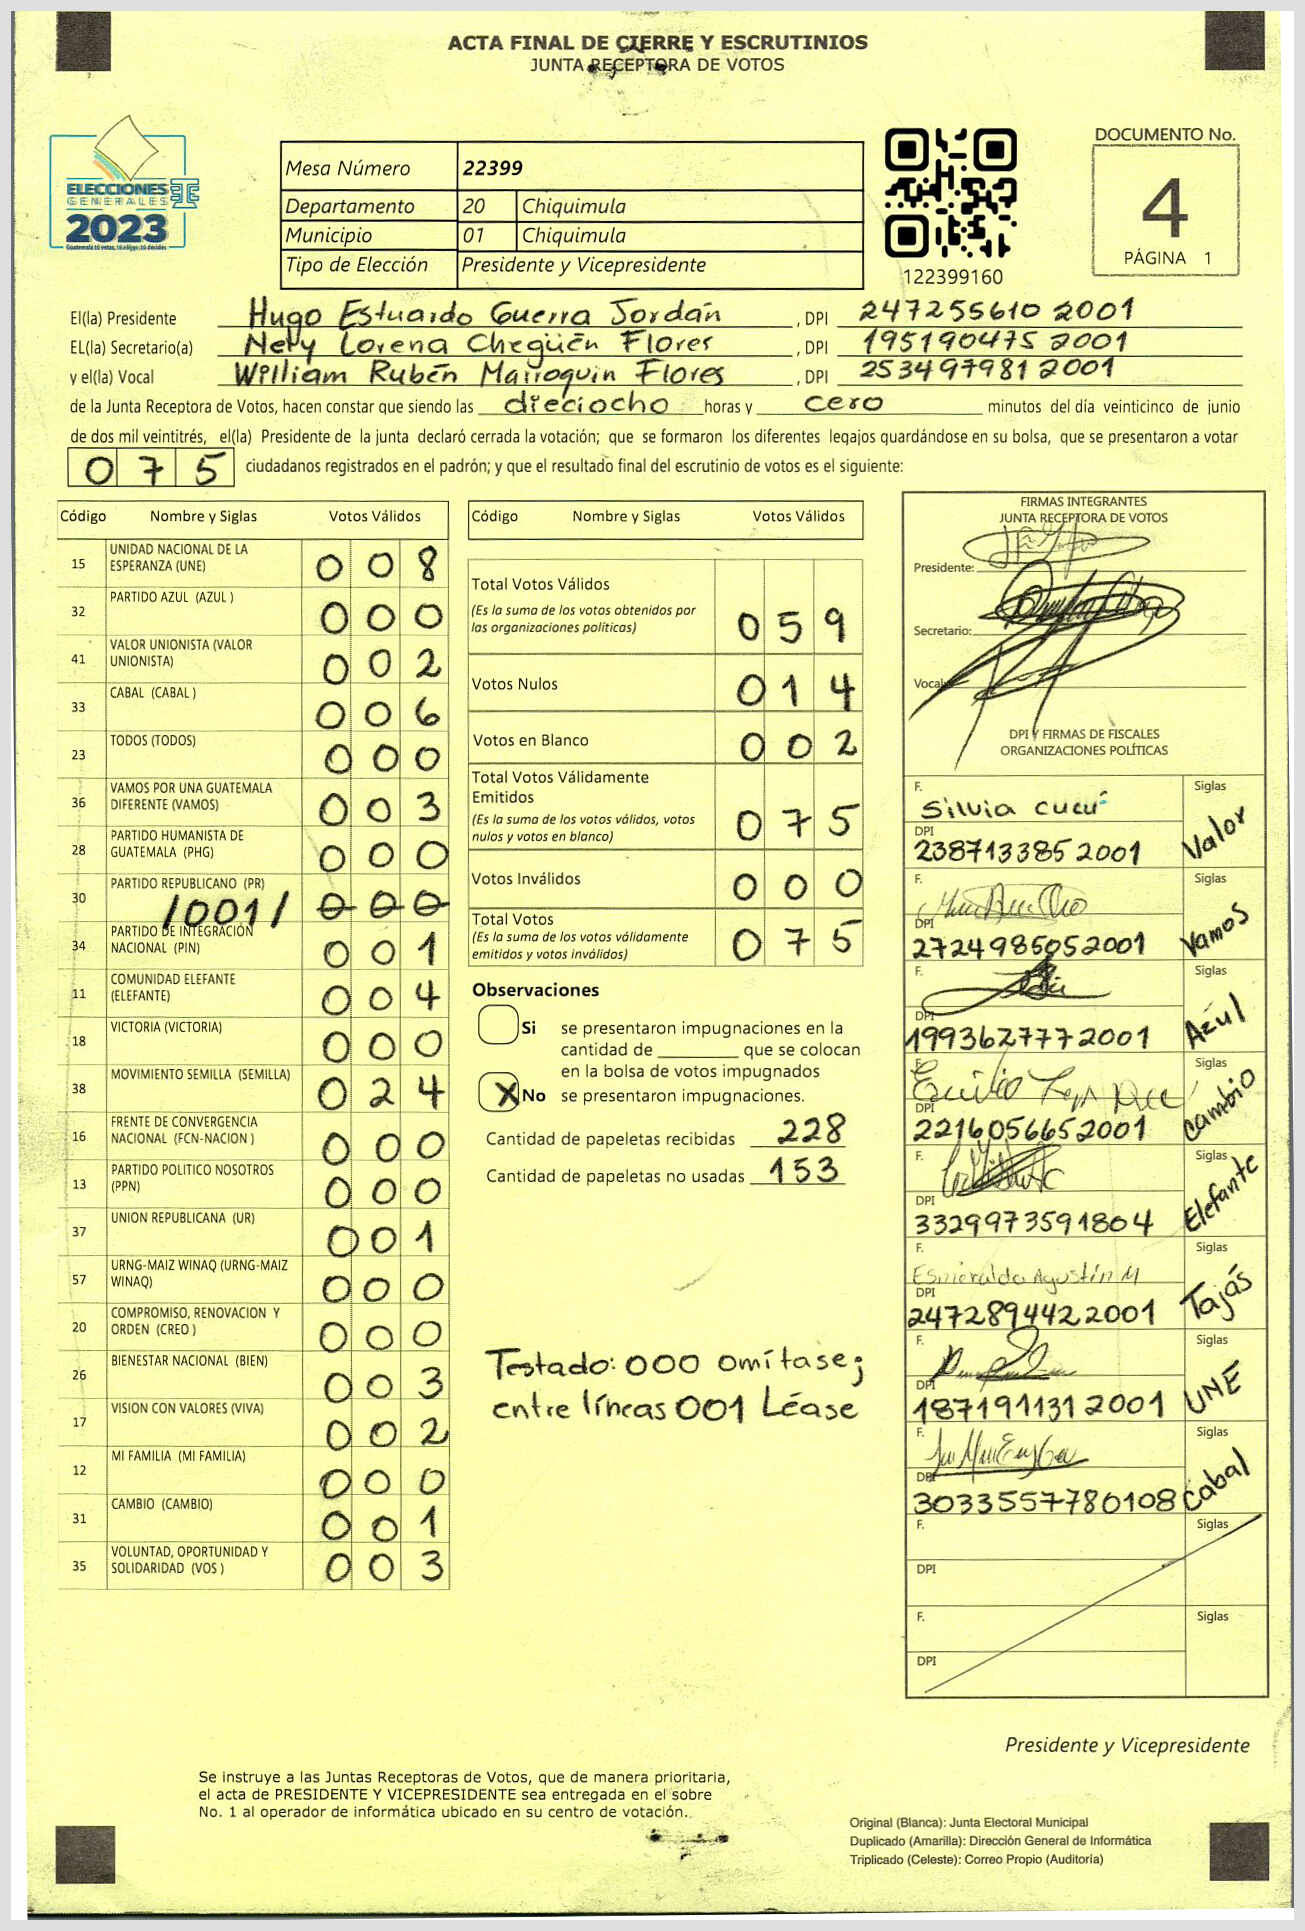 ACTA FINAL DE CIERRE Y ESCRUTINIOS
JUNTA RECEPTORA DE VOTOS
ELECCIONES
GENERALES
2023
Mesa Número 22399
Departamento 20 Chiquimula
Municipio 01 Chiquimula
Tipo de Elección Presidente y Vicepresidente
122399160
DOCUMENTO No.
4
PÁGINA 1
El(la) Presidente Hugo Estuardo Guerra Jordán , DPI 247255610 2001
EL(la) Secretario(a) Nety Lorena Chegüén Flores , DPI 195190475 2001
y el(la) Vocal William Rubén Marroquin Flores , DPI 253497981 2001
de la Junta Receptora de Votos, hacen constar que siendo las dieciocho horas y cero minutos del día veinticinco de junio
de dos mil veintitrés, el(la) Presidente de la junta declaró cerrada la votación; que se formaron los diferentes legajos guardándose en su bolsa, que se presentaron a votar
075 ciudadanos registrados en el padrón; y que el resultado final del escrutinio de votos es el siguiente:
Código Nombre y Siglas Votos Válidos
15 UNIDAD NACIONAL DE LA ESPERANZA (UNE) 008
32 PARTIDO AZUL (AZUL ) 000
41 VALOR UNIONISTA (VALOR UNIONISTA) 002
33 CABAL (CABAL ) 006
23 TODOS (TODOS) 000
36 VAMOS POR UNA GUATEMALA DIFERENTE (VAMOS) 003
28 PARTIDO HUMANISTA DE GUATEMALA (PHG) 000
30 PARTIDO REPUBLICANO (PR) /001/ 000
34 PARTIDO DE INTEGRACIÓN NACIONAL (PIN) 001
11 COMUNIDAD ELEFANTE (ELEFANTE) 004
18 VICTORIA (VICTORIA) 000
38 MOVIMIENTO SEMILLA (SEMILLA) 024
16 FRENTE DE CONVERGENCIA NACIONAL (FCN-NACION ) 000
13 PARTIDO POLITICO NOSOTROS (PPN) 000
37 UNION REPUBLICANA (UR) 001
57 URNG-MAIZ WINAQ (URNG-MAIZ WINAQ) 000
20 COMPROMISO, RENOVACION Y ORDEN (CREO ) 000
26 BIENESTAR NACIONAL (BIEN) 003
17 VISION CON VALORES (VIVA) 002
12 MI FAMILIA (MI FAMILIA) 000
31 CAMBIO (CAMBIO) 001
35 VOLUNTAD, OPORTUNIDAD Y SOLIDARIDAD (VOS ) 003
Código Nombre y Siglas Votos Válidos
Total Votos Válidos
(Es la suma de los votos obtenidos por
las organizaciones políticas) 059
Votos Nulos 014
Votos en Blanco 002
Total Votos Válidamente
Emitidos
(Es la suma de los votos válidos, votos
nulos y votos en blanco) 075
Votos Inválidos 000
Total Votos
(Es la suma de los votos válidamente
emitidos y votos inválidos) 075
Observaciones
Si se presentaron impugnaciones en la
cantidad de ________ que se colocan
en la bolsa de votos impugnados
X No se presentaron impugnaciones.
Cantidad de papeletas recibidas 228
Cantidad de papeletas no usadas 153
Testado: 000 omítase;
entre líneas 001 Léase
FIRMAS INTEGRANTES
JUNTA RECEPTORA DE VOTOS
Presidente:
Secretario:
Vocal:
DPI Y FIRMAS DE FISCALES
ORGANIZACIONES POLÍTICAS
F. Silvia Cucú Siglas
DPI 238713385 2001 Valor
F. Siglas
DPI 2724985052001 Vamos
F. Siglas
DPI 1993627772001 Azul
F. Siglas
DPI 2216056652001 Cambio
F. Siglas
DPI 3329973591804 Elefante
F. Esmeralda Agustín M Siglas
DPI 2472894422001 Tajás
F. Siglas
DPI 187191131 2001 UNE
F. Siglas
DPI 3033557780108 Cabal
F. Siglas
DPI
F. Siglas
DPI
Presidente y Vicepresidente
Se instruye a las Juntas Receptoras de Votos, que de manera prioritaria,
el acta de PRESIDENTE Y VICEPRESIDENTE sea entregada en el sobre
No. 1 al operador de informática ubicado en su centro de votación.
Original (Blanca): Junta Electoral Municipal
Duplicado (Amarilla): Dirección General de Informática
Triplicado (Celeste): Correo Propio (Auditoría)